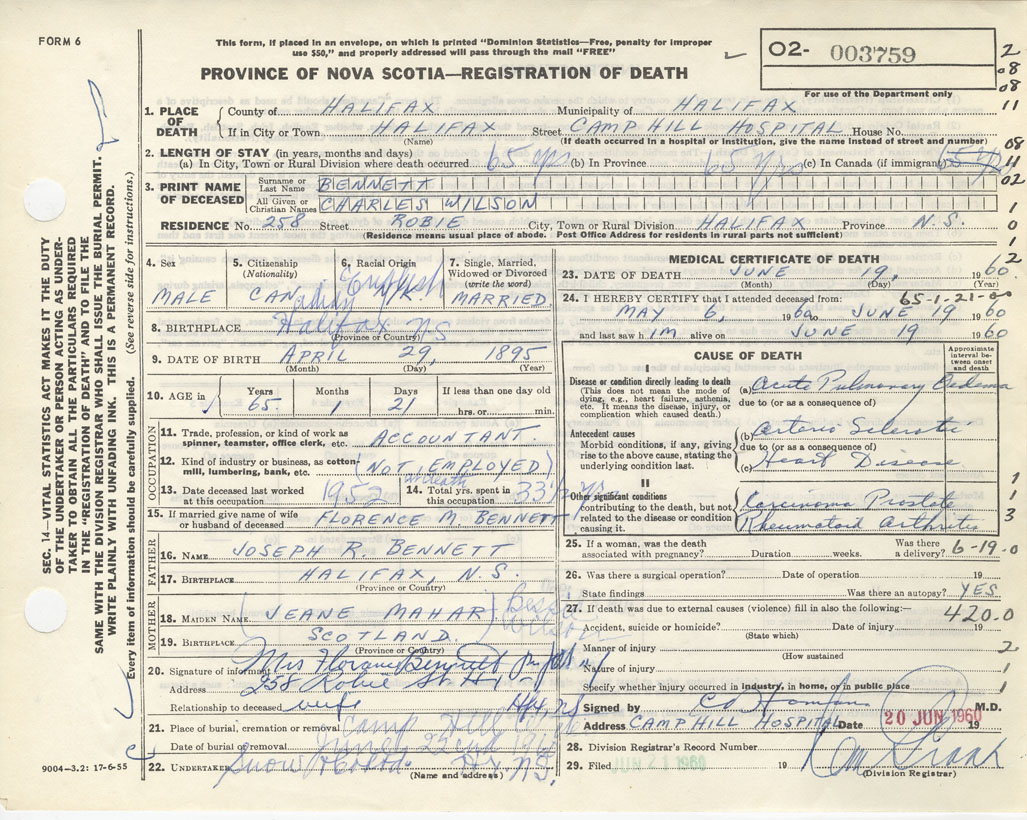 FORM 6
This form, if placed in an envelope, on which is printed "Dominion Statistics—Free, penalty for improper
use $50," and properly addressed will pass through the mail "FREE"
PROVINCE OF NOVA SCOTIA—REGISTRATION OF DEATH
O2- 003759
For use of the Department only
2
08
08
11
08
11
02
1
0
1
2
1. PLACE OF DEATH
County of HALIFAX Municipality of HALIFAX
If in City or Town HALIFAX Street CAMP HILL HOSPITAL House No.
(Name) (If death occurred in a hospital or institution, give the name instead of street and number)
2. LENGTH OF STAY (in years, months and days)
(a) In City, Town or Rural Division where death occurred 65 yrs (b) In Province 65 yrs (c) In Canada (if immigrant) 65 yrs
3. PRINT NAME OF DECEASED
Surname or Last Name BENNETT
All Given or Christian Names CHARLES WILSON
RESIDENCE No. 258 Street ROBIE City, Town or Rural Division HALIFAX Province N.S.
(Residence means usual place of abode. Post Office Address for residents in rural parts not sufficient)
4. Sex MALE
5. Citizenship (Nationality) CANADIAN
6. Racial Origin English
7. Single, Married, Widowed or Divorced (write the word) MARRIED
8. BIRTHPLACE Halifax NS
(Province or Country)
9. DATE OF BIRTH APRIL 29, 1895
(Month) (Day) (Year)
10. AGE in Years 65 Months 1 Days 21 If less than one day old hrs. or min.
OCCUPATION
11. Trade, profession, or kind of work as spinner, teamster, office clerk, etc. ACCOUNTANT.
12. Kind of industry or business, as cotton-mill, lumbering, bank, etc. (NOT EMPLOYED)
13. Date deceased last worked at this occupation 1952
14. Total yrs. spent in this occupation 33 yrs
15. If married give name of wife or husband of deceased FLORENCE M. BENNETT
FATHER
16. NAME JOSEPH R. BENNETT
17. BIRTHPLACE HALIFAX, N.S.
(Province or Country)
MOTHER
18. MAIDEN NAME (JEANE MAHAR)
19. BIRTHPLACE SCOTLAND.
(Province or Country)
20. Signature of informant Mrs Florence Bennett
Address 258 Robie St Hx
Relationship to deceased wife
21. Place of burial, cremation or removal Camp Hill
Date of burial or removal June 22nd 1960
22. UNDERTAKER Snow Hx. N.S.
(Name and address)
MEDICAL CERTIFICATE OF DEATH
23. DATE OF DEATH JUNE 19, 1960.
(Month) (Day) (Year)
24. I HEREBY CERTIFY that I attended deceased from: 65-1-21-00
MAY 6, 1960, to JUNE 19 1960
and last saw h IM alive on JUNE 19 1960
CAUSE OF DEATH
Approximate interval between onset and death
I
Disease or condition directly leading to death
(This does not mean the mode of dying, e.g., heart failure, asthenia, etc. It means the disease, injury, or complication which caused death.)
(a) Acute Pulmonary Oedema
due to (or as a consequence of)
Antecedent causes
Morbid conditions, if any, giving rise to the above cause, stating the underlying condition last.
(b) Arterio Sclerotic
due to (or as a consequence of)
(c) Heart Disease
II
Other significant conditions
contributing to the death, but not related to the disease or condition causing it.
Carcinoma Prostate
Rheumatoid Arthritis
1
1
3
25. If a woman, was the death associated with pregnancy? Duration weeks. Was there a delivery? 6-19-0
26. Was there a surgical operation? Date of operation 19
State findings Was there an autopsy? YES.
27. If death was due to external causes (violence) fill in also the following:—
420.0
Accident, suicide or homicide? Date of injury 19
(State which)
Manner of injury 2
(How sustained)
Nature of injury 1
Specify whether injury occurred in industry, in home, or in public place 1
Signed by M.D.
Address CAMP HILL HOSPITAL Date 20 JUN 1960 19
28. Division Registrar's Record Number
29. Filed JUN 21 1960 19
(Division Registrar)
9004-3.2: 17-6-55
SEC. 14—VITAL STATISTICS ACT MAKES IT THE DUTY
OF THE UNDERTAKER OR PERSON ACTING AS UNDER-
TAKER TO OBTAIN ALL THE PARTICULARS REQUIRED
IN THE "REGISTRATION OF DEATH" AND FILE THE
SAME WITH THE DIVISION REGISTRAR WHO SHALL ISSUE THE BURIAL PERMIT.
WRITE PLAINLY WITH UNFADING INK. THIS IS A PERMANENT RECORD.
Every item of information should be carefully supplied. (See reverse side for instructions.)